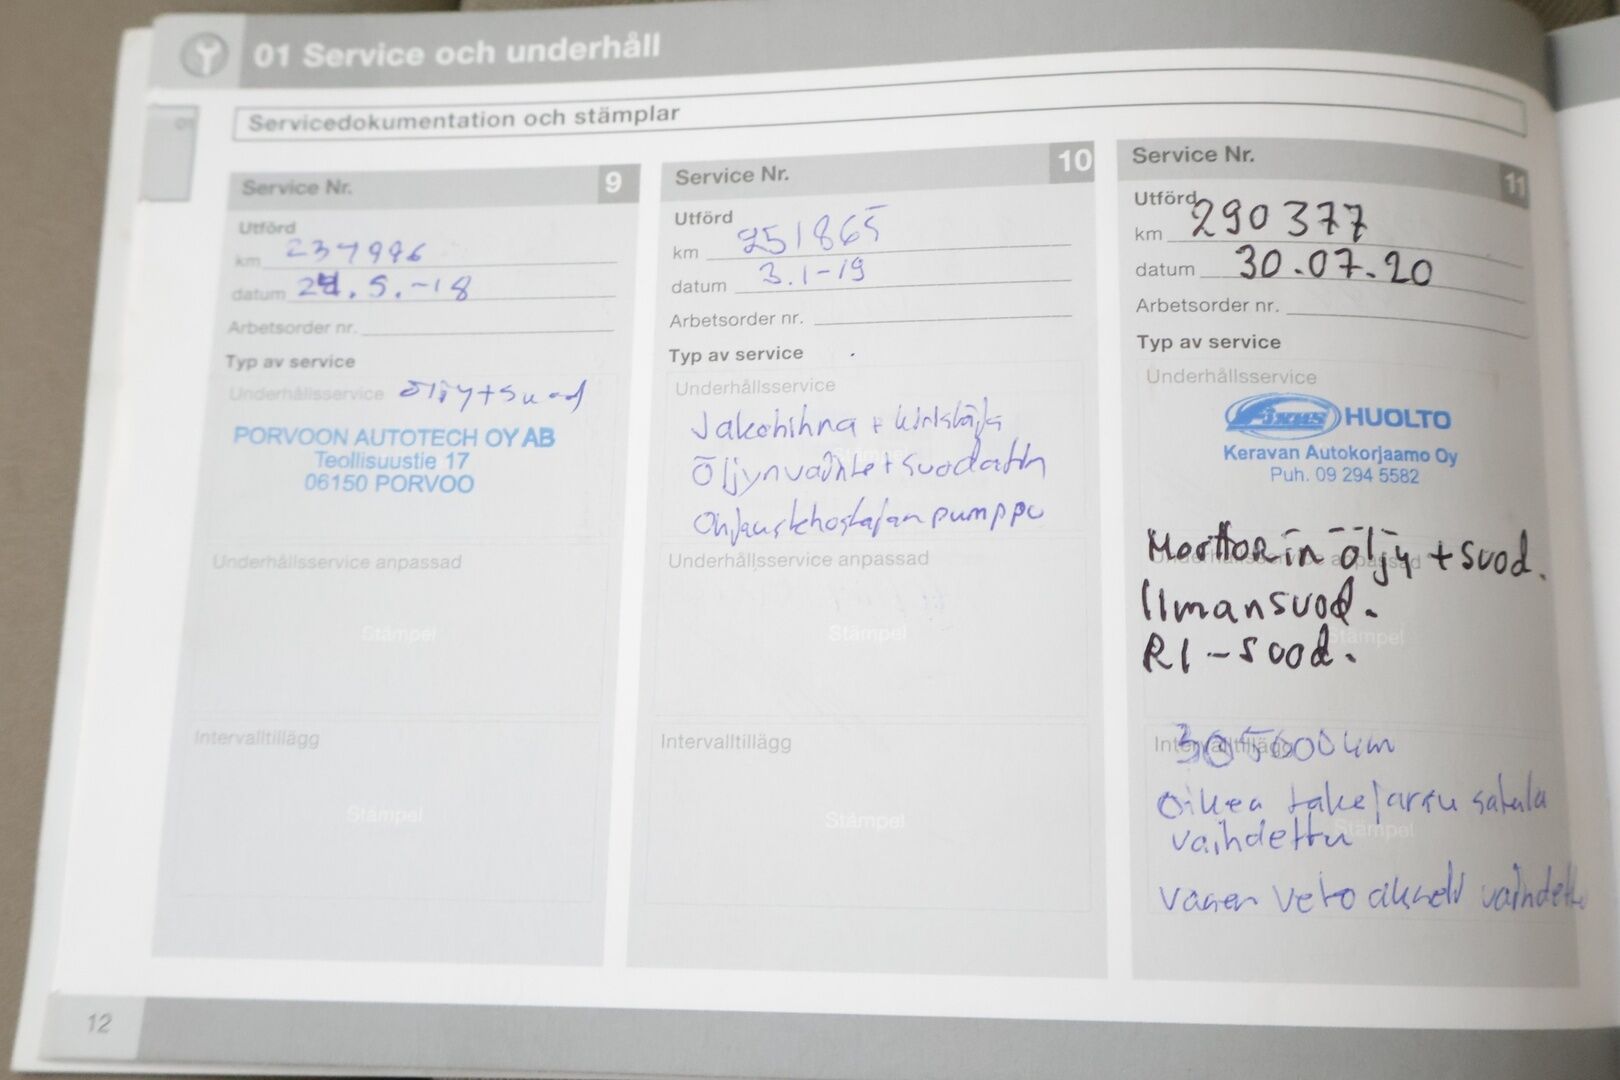 01 Service och underhåll
01
Servicedokumentation och stämplar
Service Nr. 9
Utförd
km 237996
datum 24.5.-18
Arbetsorder nr.
Typ av service
Underhållsservice öljy+suod
PORVOON AUTOTECH OY AB
Teollisuustie 17
06150 PORVOO
Underhållsservice anpassad
Stämpel
Intervalltillägg
Stämpel
Service Nr. 10
Utförd
km 251865
datum 3.1-19
Arbetsorder nr.
Typ av service
Underhållsservice
Jakohihna + kiristäjä
Stämpel
Öljynvaihto + suodatin
Ohjaustehostajan pumppu
Underhållsservice anpassad
Stämpel
Intervalltillägg
Stämpel
Service Nr. 11
Utförd
km 290377
datum 30.07.20
Arbetsorder nr.
Typ av service
Underhållsservice
Fixus HUOLTO
Keravan Autokorjaamo Oy
Puh. 09 294 5582
Underhållsservice anpassad
Moottorin öljy + suod.
Ilmansuod.
RI-suod.
Stämpel
Intervalltillägg
305000 km
Oikea takajarru satula
vaihdettu
Stämpel
Vasen veto akseli vaihdettu
12